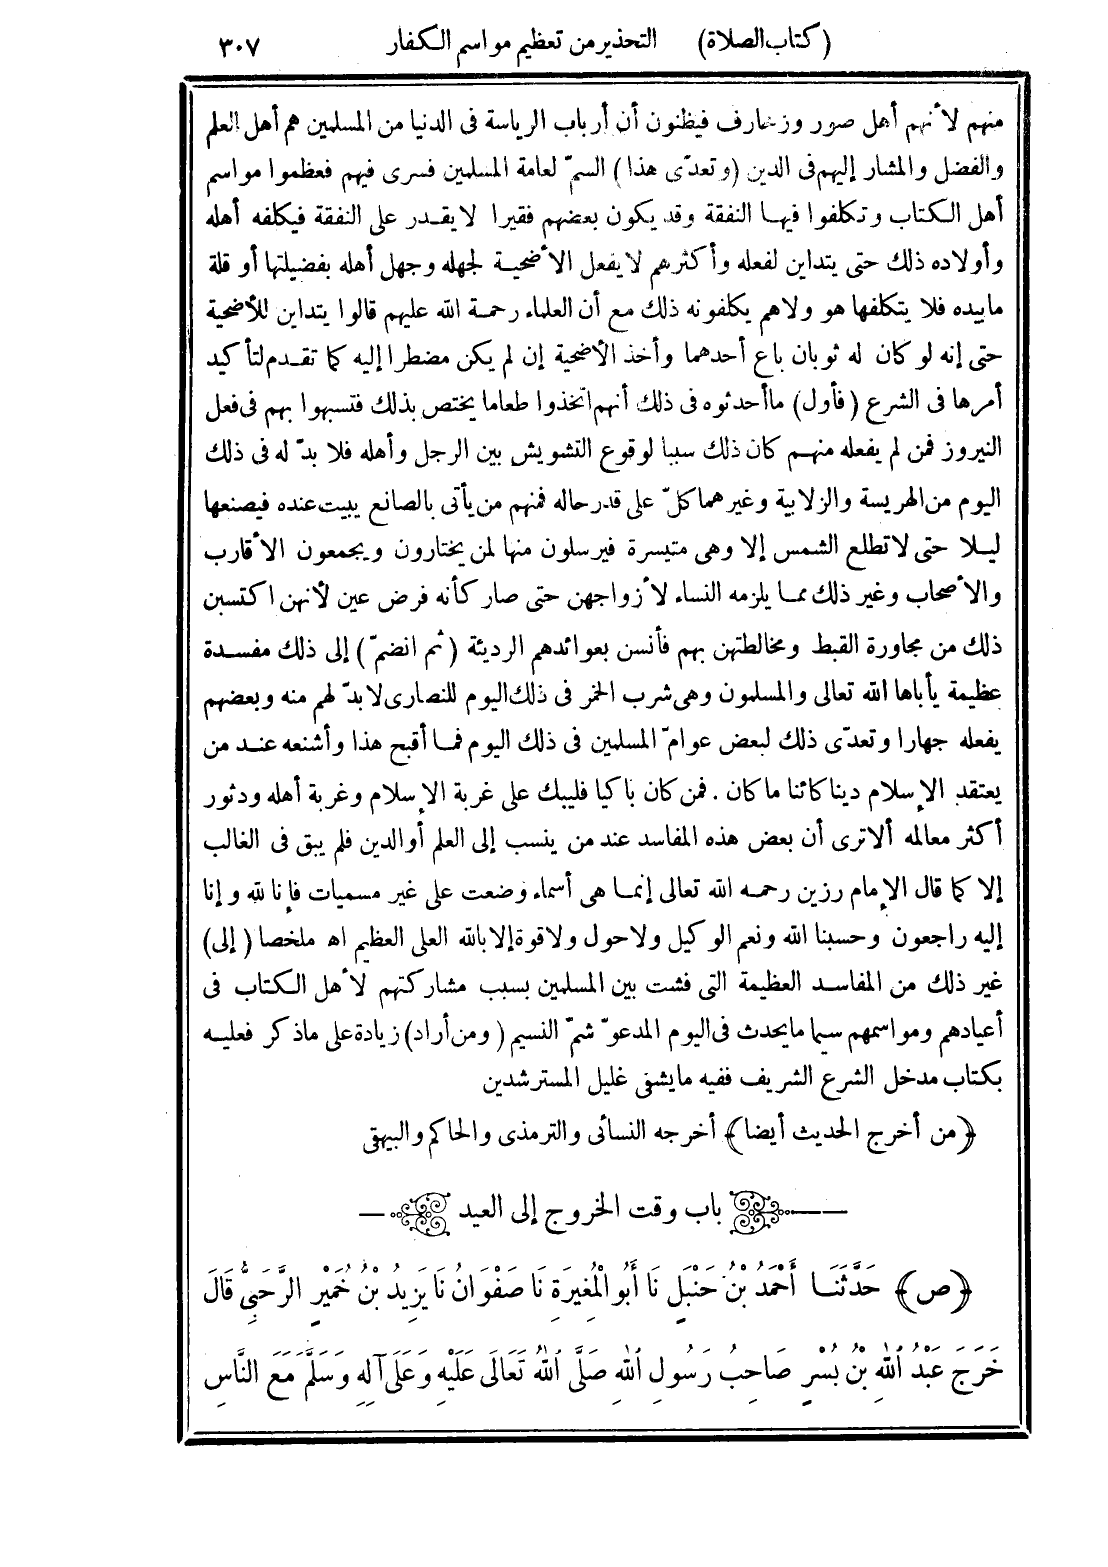 (كتاب الصلاة) التحذير من تعظيم مواسم الكفار ٣٠٧
منهم لأنهم أهل صور وزخارف فيظنون أن أرباب الرياسة فى الدنيا من المسلمين هم أهل العلم
والفضل والمشار إليهم فى الدين (وتعدّى هذا) السمّ لعامة المسلمين فسرى فيهم فعظموا مواسم
أهل الكتاب وتكلفوا فيها النفقة وقد يكون بعضهم فقيرا لايقدر على النفقة فيكلفه أهله
وأولاده ذلك حتى يتداين لفعله وأكثرهم لايفعل الأضحية لجهله وجهل أهله بفضيلتها أو قلة
مابيده فلا يتكلفها هو ولاهم يكلفونه ذلك مع أن العلماء رحمة الله عليهم قالوا يتداين للأضحية
حتى إنه لو كان له ثوبان باع أحدهما وأخذ الأضحية إن لم يكن مضطرا إليه كما تقدم لتأكيد
أمرها فى الشرع (فأول) ماأحدثوه فى ذلك أنهم اتخذوا طعاما يختص بذلك فتسبهوا بهم فى فعل
النيروز فمن لم يفعله منهم كان ذلك سببا لوقوع التشويش بين الرجل وأهله فلا بدّ له فى ذلك
اليوم من الهريسة والزلابية وغيرهما كلّ على قدر حاله فمنهم من يأتى بالصانع يبيت عنده فيصنعها
ليلا حتى لاتطلع الشمس إلا وهى متيسرة فيرسلون منها لمن يختارون ويجمعون الأقارب
والأصحاب وغير ذلك مما يلزمه النساء لأزواجهن حتى صار كأنه فرض عين لأنهن اكتسبن
ذلك من مجاورة القبط ومخالطتهن بهم فأنسن بعوائدهم الرديئة (ثم انضمّ) إلى ذلك مفسدة
عظيمة يأباها الله تعالى والمسلمون وهى شرب الخمر فى ذلك اليوم للنصارى لابدّ لهم منه وبعضهم
يفعله جهارا وتعدّى ذلك لبعض عوامّ المسلمين فى ذلك اليوم فما أقبح هذا وأشنعه عند من
يعتقد الإسلام دينا كائنا ماكان . فمن كان باكيا فليبك على غربة الإسلام وغربة أهله ودثور
أكثر معالمه ألاترى أن بعض هذه المفاسد عند من ينسب إلى العلم أو الدين فلم يبق فى الغالب
إلا كما قال الإمام رزين رحمه الله تعالى إنما هى أسماء وضعت على غير مسميات فإنا لله وإنا
إليه راجعون وحسبنا الله ونعم الوكيل ولاحول ولاقوة إلا بالله العلى العظيم اه ملخصا (إلى)
غير ذلك من المفاسد العظيمة التى فشت بين المسلمين بسبب مشاركتهم لأهل الكتاب فى
أعيادهم ومواسمهم سيما مايحدث فى اليوم المدعوّ شمّ النسيم (ومن أراد) زيادة على ماذكر فعليه
بكتاب مدخل الشرع الشريف ففيه مايشفى غليل المسترشدين
﴿من أخرج الحديث أيضا﴾ أخرجه النسائى والترمذى والحاكم والبيهقى
باب وقت الخروج إلى العيد
﴿ص﴾ حَدَّثَنَا أَحْمَدُ بْنُ حَنْبَلٍ نَا أَبُو الْمُغِيرَةِ نَا صَفْوَانُ نَا يَزِيدُ بْنُ خُمَيْرٍ الرَّحَبِيُّ قَالَ
خَرَجَ عَبْدُ اللهِ بْنُ بُسْرٍ صَاحِبُ رَسُولِ اللهِ صَلَّى اللهُ تَعَالَى عَلَيْهِ وَعَلَى آلِهِ وَسَلَّمَ مَعَ النَّاسِ